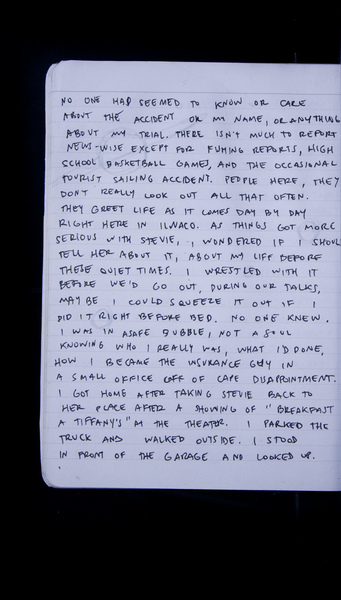 NO ONE HAD SEEMED TO KNOW OR CARE
ABOUT THE ACCIDENT OR MY NAME, OR ANYTHING
ABOUT MY TRIAL. THERE ISN'T MUCH TO REPORT
NEWS-WISE EXCEPT FOR FISHING REPORTS, HIGH
SCHOOL BASKETBALL GAMES, AND THE OCCASIONAL
TOURIST SAILING ACCIDENT. PEOPLE HERE, THEY
DON'T REALLY LOOK OUT ALL THAT OFTEN.
THEY GREET LIFE AS IT COMES DAY BY DAY
RIGHT HERE IN ILWACO. AS THINGS GOT MORE
SERIOUS WITH STEVIE, I WONDERED IF I SHOUL
TELL HER ABOUT IT, ABOUT MY LIFE BEFORE
THESE QUIET TIMES. I WRESTLED WITH IT
BEFORE WE'D GO OUT, DURING OUR TALKS,
MAYBE I COULD SQUEEZE IT OUT IF I
DID IT RIGHT BEFORE BED. NO ONE KNEW.
I WAS IN A SAFE BUBBLE, NOT A SOUL
KNOWING WHO I REALLY WAS, WHAT I'D DONE,
HOW I BECAME THE INSURANCE GUY IN
A SMALL OFFICE OFF OF CAPE DISAPPOINTMENT.
I GOT HOME AFTER TAKING STEVIE BACK TO
HER PLACE AFTER A SHOWING OF "BREAKFAST
A TIFFANY'S" AT THE THEATER. I PARKED THE
TRUCK AND WALKED OUTSIDE. I STOOD
IN FRONT OF THE GARAGE AND LOOKED UP.